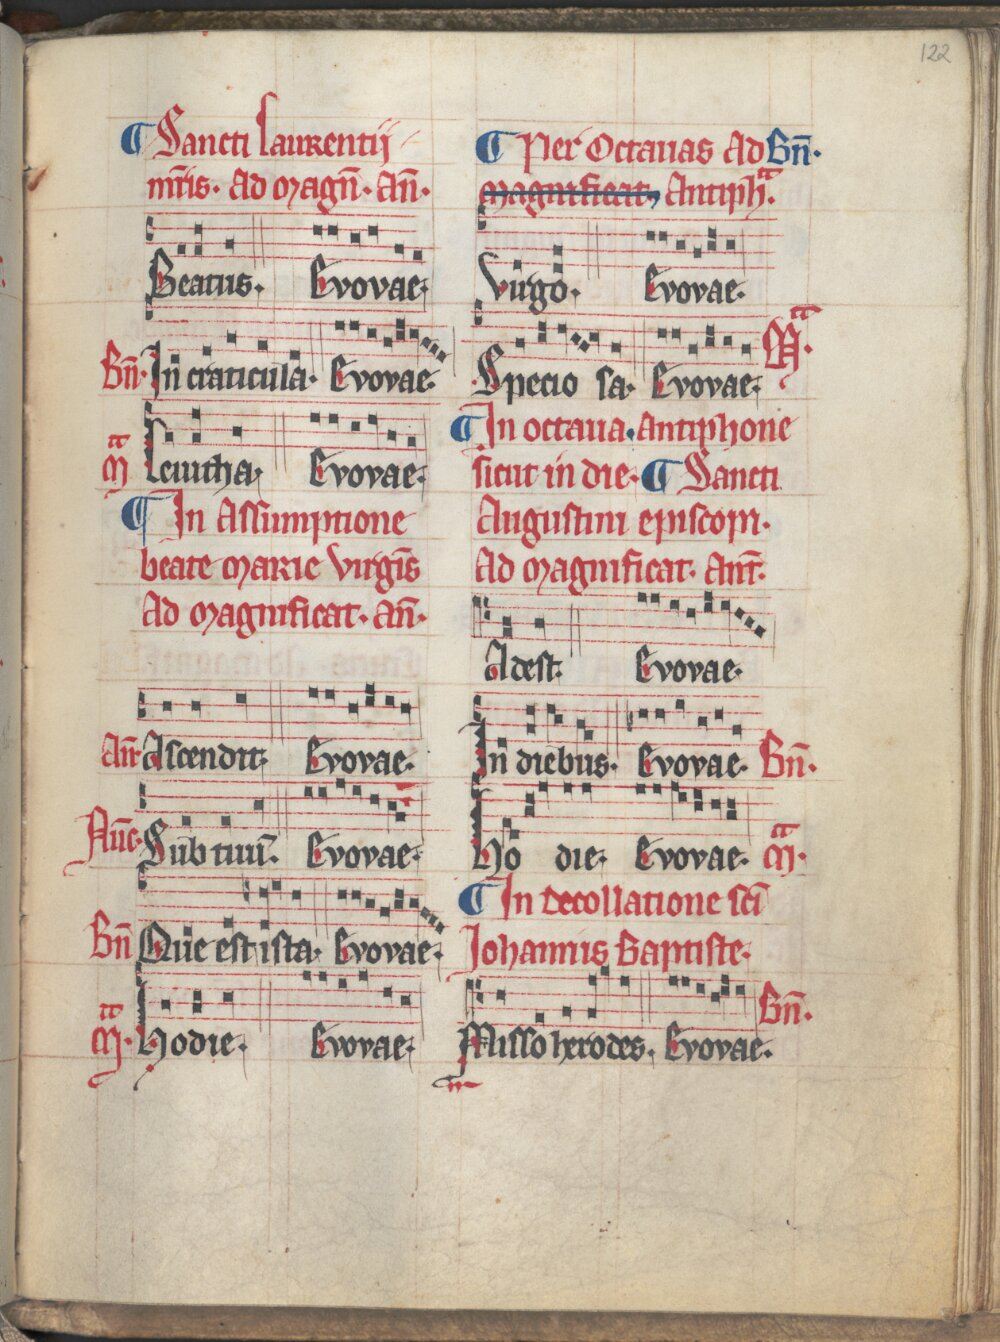 122
¶ Sancti laurentij
mr̄is. Ad magn̄. an̄.
Beatus. Evovae.
Bn̄. In craticula. Evovae.
M Levitha. Evovae.
¶ In Assumptione
beate marie virgīs
Ad magnificat. an̄.
An̄ Ascendit. Evovae.
Nūc. Sub tuū. Evovae.
Bn̄ Que est ista. Evovae.
M. Hodie. Evovae.
¶ Per Octavas Ad Bn̄.
magnificat, Antiph̄.
Virgo. Evovae.
Specio sa. Evovae. M.
¶ In octava. antiphone
sicut in die. ¶ Sancti
Augustini episcopi.
Ad magnificat. ant̄.
Adest. Evovae.
In diebus. Evovae. Bn̄.
Ho die. Evovae. M.
¶ In decollatione sc̄i
Johannis Baptiste.
Misso herodes. Evovae. Bn̄.